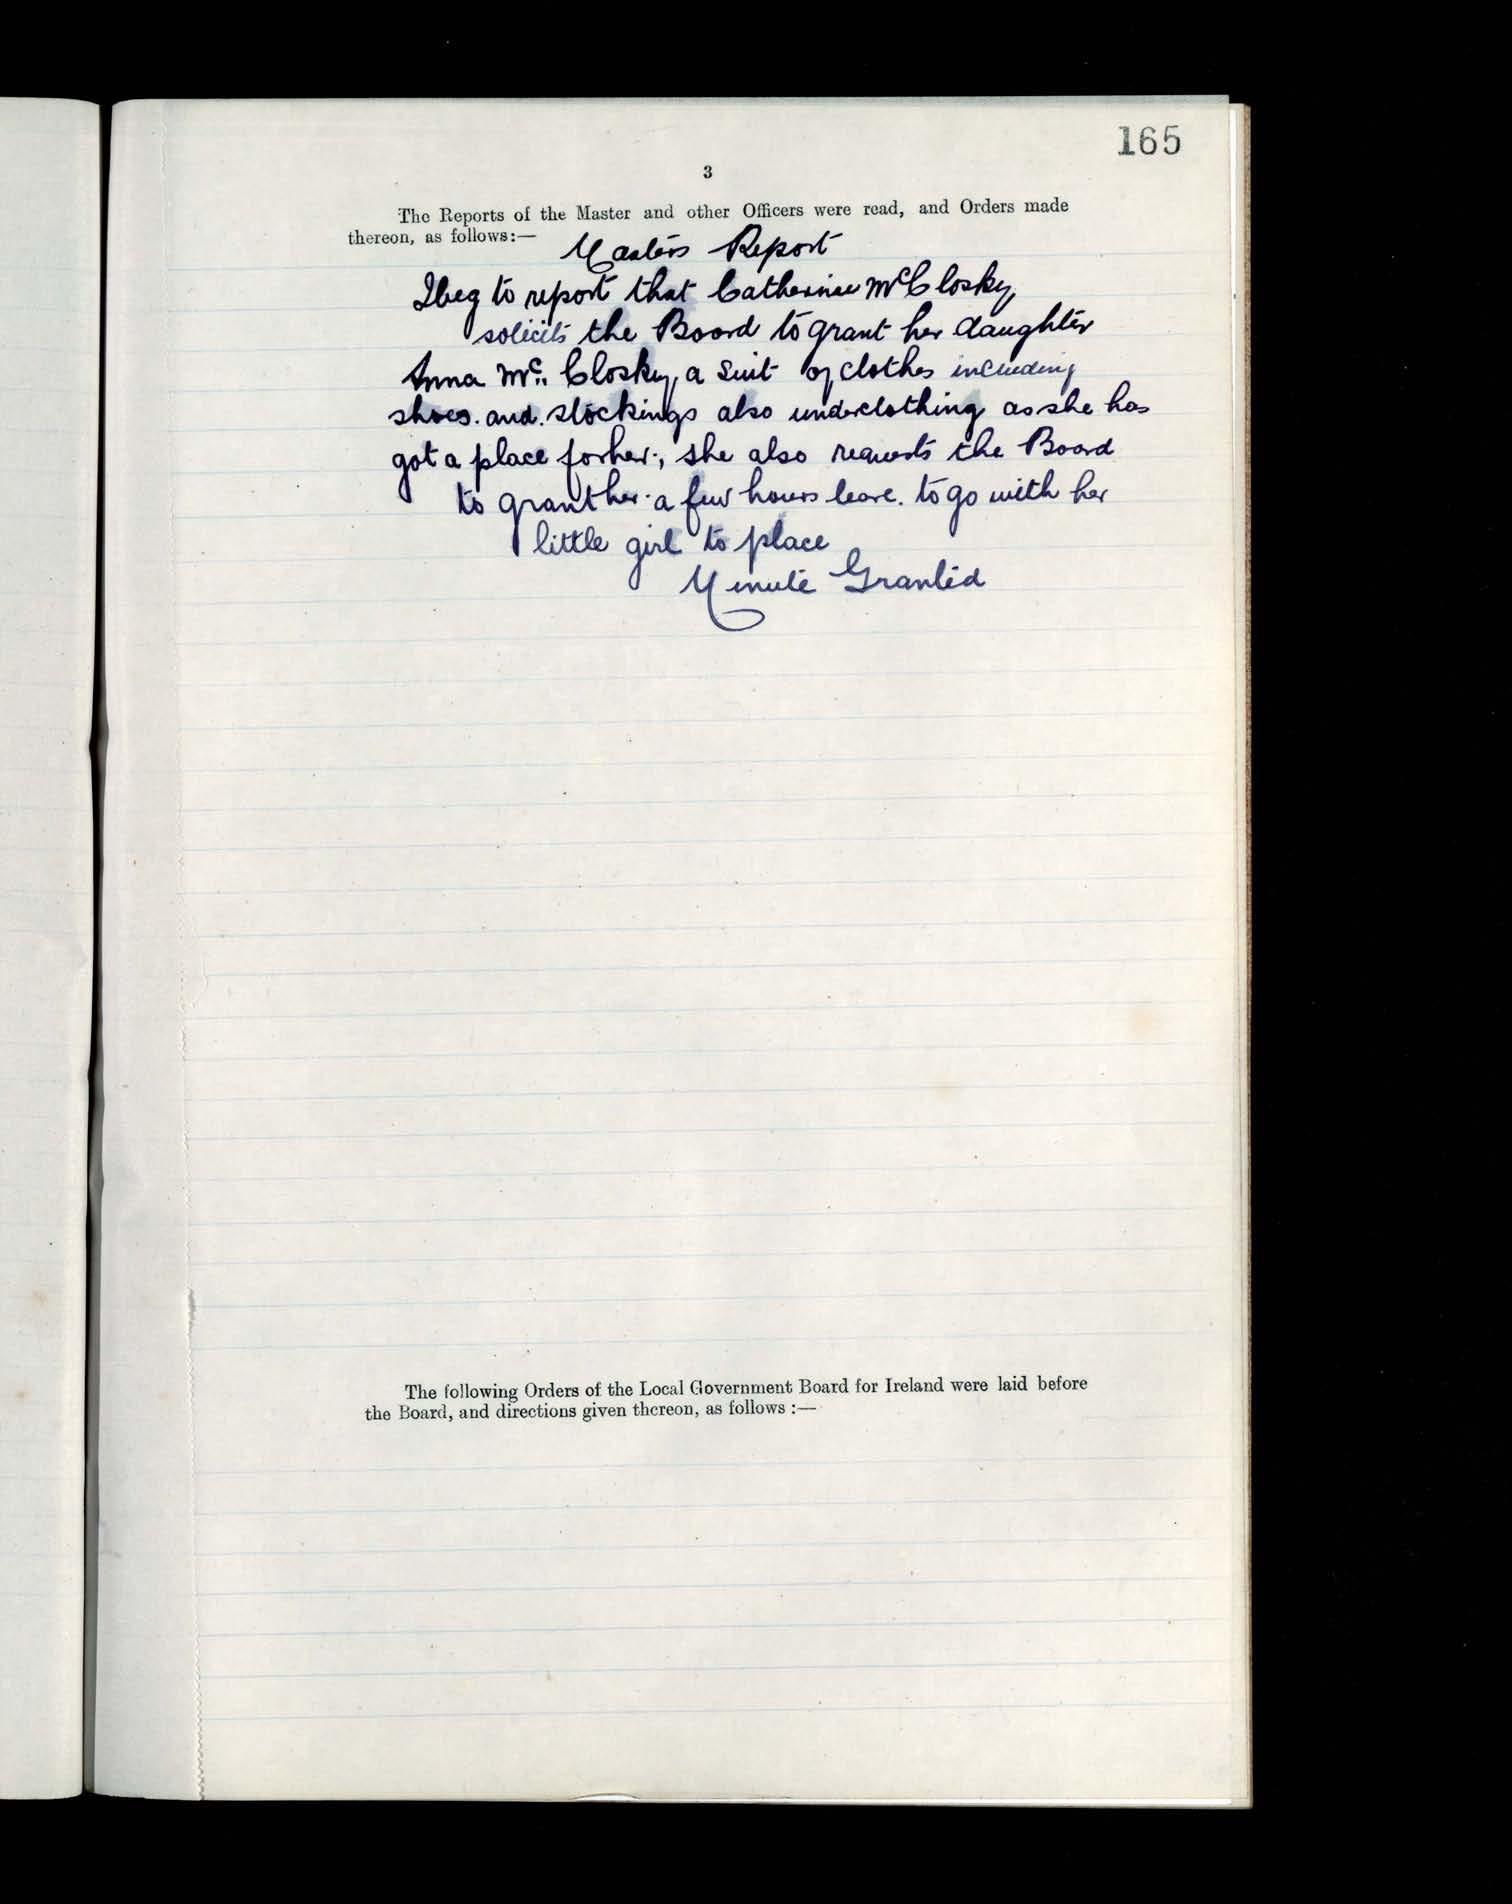 165
3
The Reports of the Master and other Officers were read, and Orders made
thereon, as follows:—
Masters Report
I beg to report that Catherine McClosky,
solicits the Board to grant her daughter
Anna Mc. Closky, a suit of clothes including
shoes. and. stockings also underclothing as she has
got a place for her; she also requests the Board
to grant her a few hours leave. to go with her
little girl to place
Minute Granted
The following Orders of the Local Government Board for Ireland were laid before
the Board, and directions given thereon, as follows :—